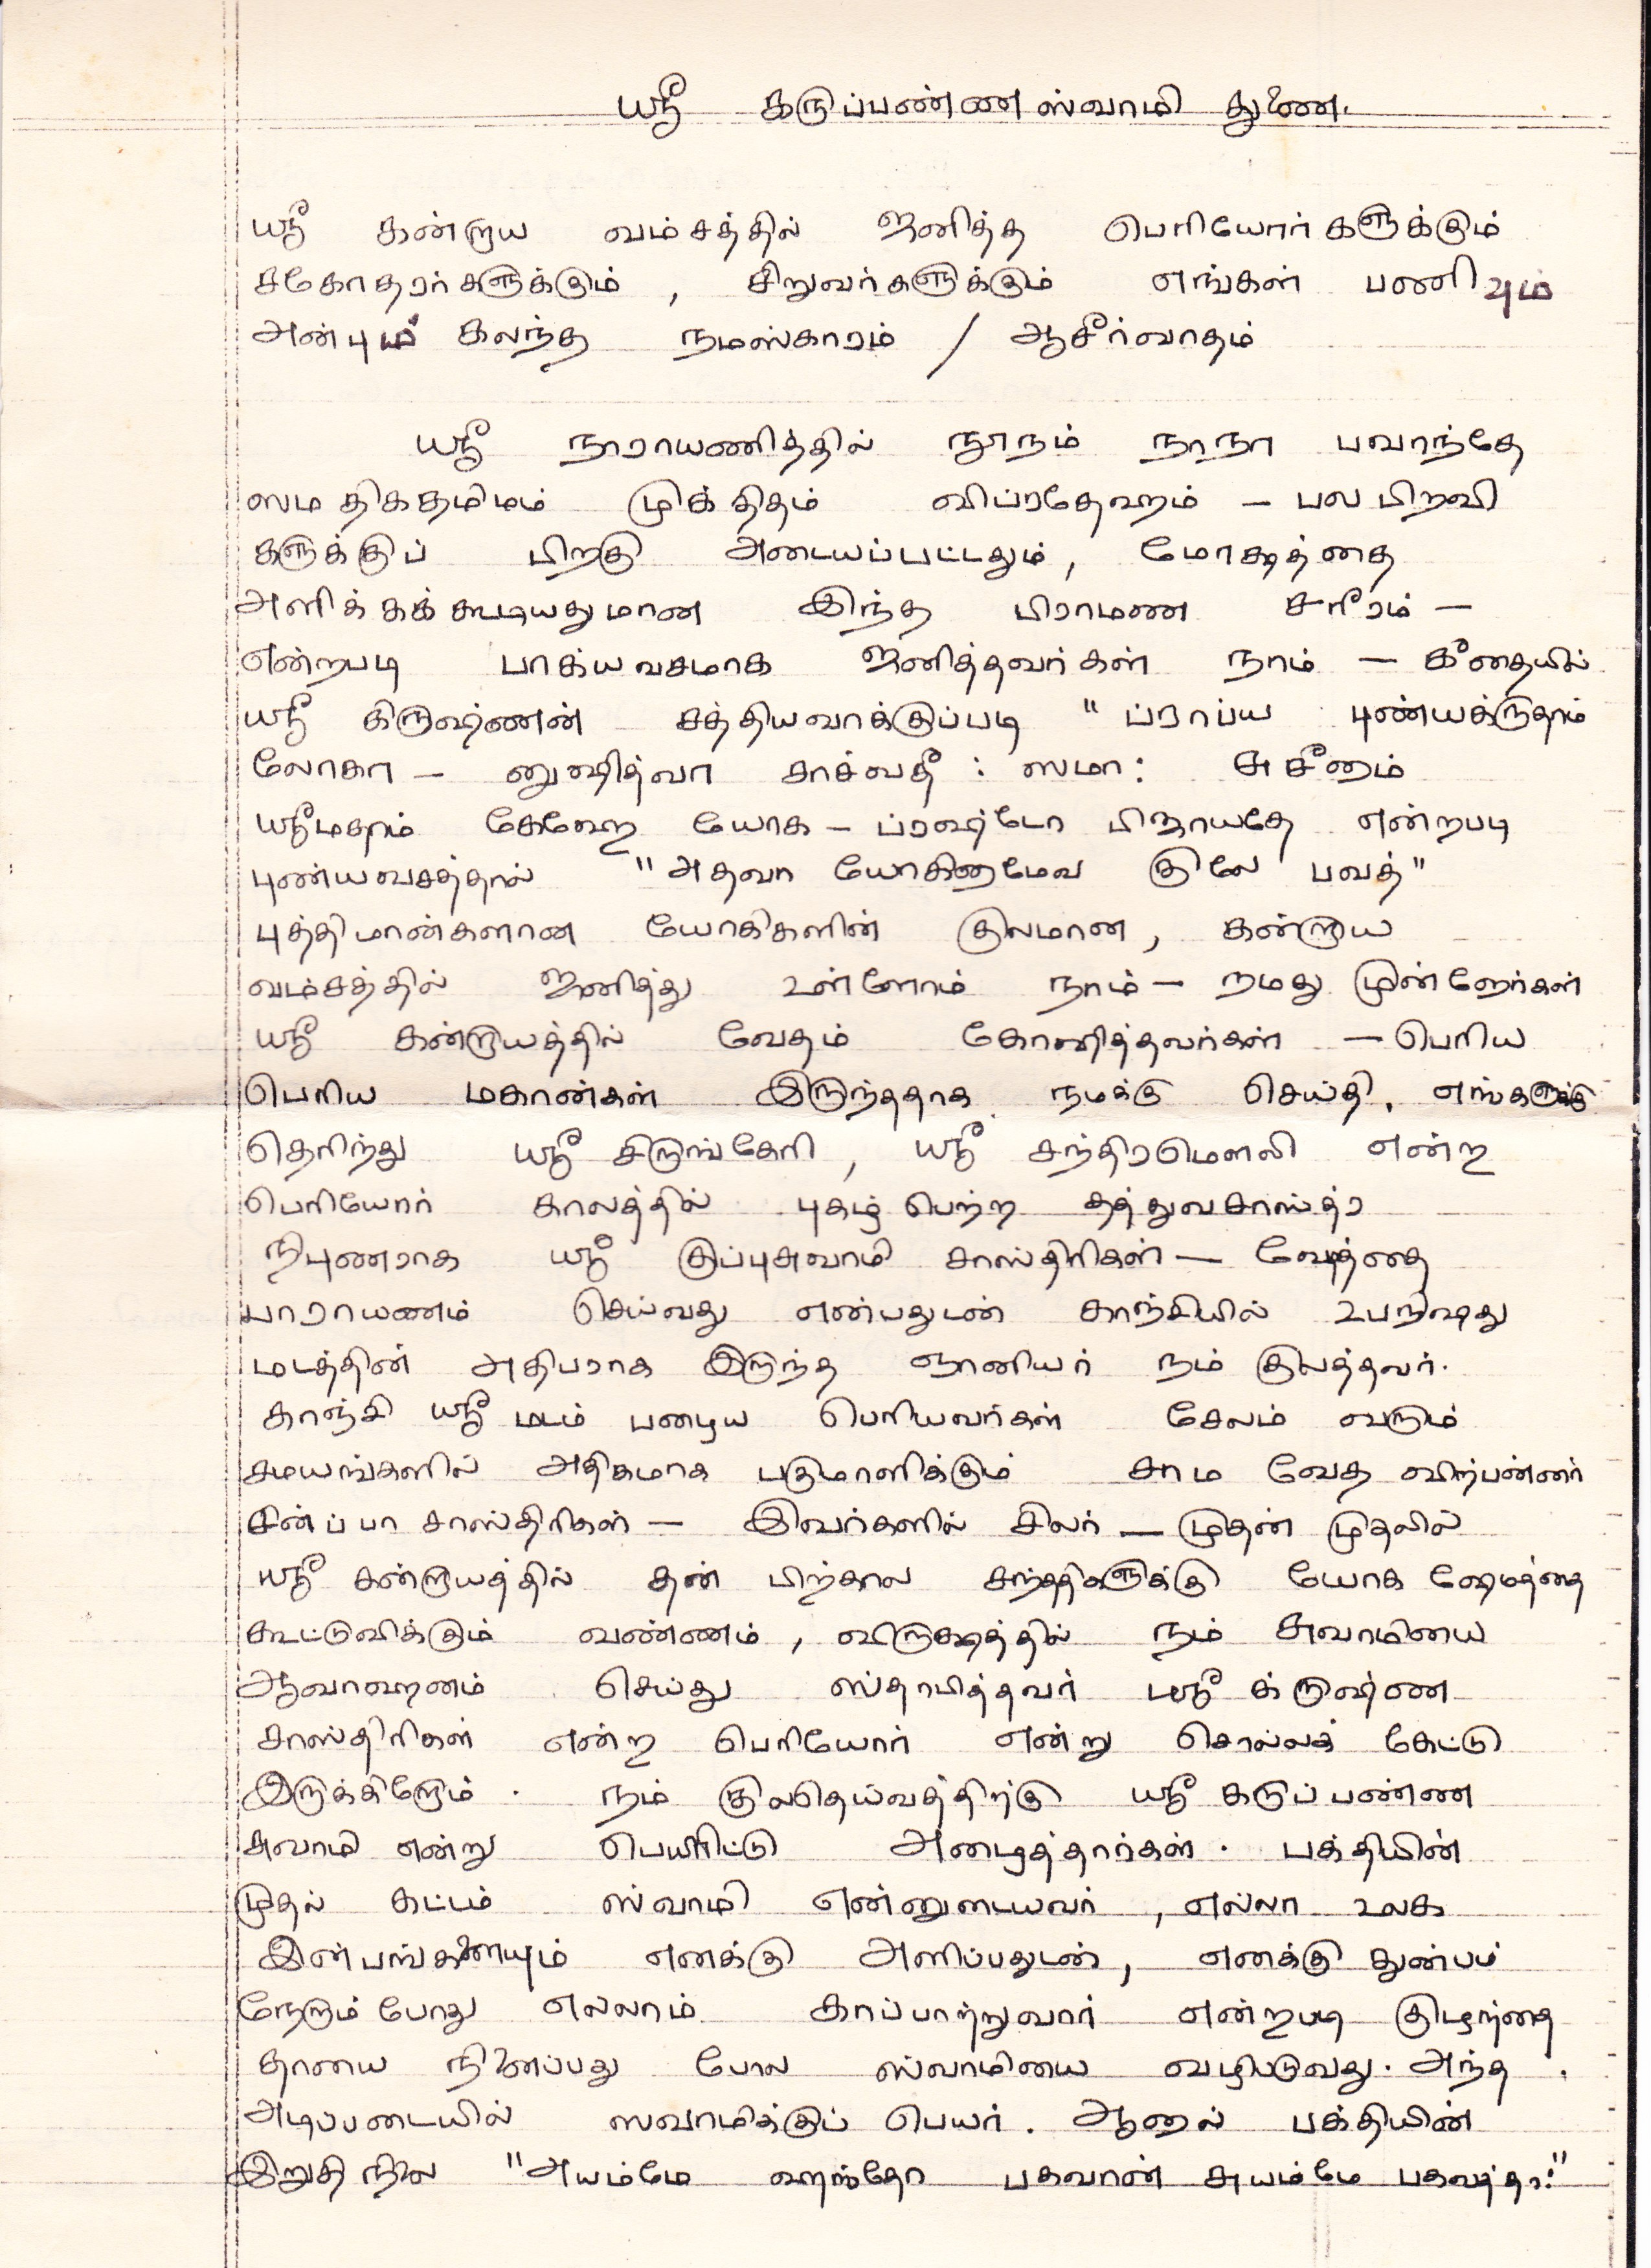 ஸ்ரீ கருப்பண்ண ஸ்வாமி துணை.
ஸ்ரீ கன்றாய வம்சத்தில் ஜனித்த பெரியோர்களுக்கும்
சகோதரர்களுக்கும், சிறுவர்களுக்கும் எங்கள் பணிவும்
அன்பும் கலந்த நமஸ்காரம் / ஆசீர்வாதம்
ஸ்ரீ நாராயணீத்தில் நூநம் நாநா பவாந்தே
ஸம திகதமிமம் முக்திதம் விப்ரதேஹம் - பல பிறவி
களுக்குப் பிறகு அடையப்பட்டதும், மோக்ஷத்தை
அளிக்கக்கூடியதுமான இந்த பிராமண சரீரம் -
என்றபடி பாக்யவசமாக ஜனித்தவர்கள் நாம் - கீதையில்
ஸ்ரீ கிருஷ்ணன் சத்தியவாக்குப்படி " ப்ராப்ய புண்யக்ருதாம்
லோகா - னுஷித்வா சாச்வதீ : ஸமா: சுசீனாம்
ஸ்ரீமதாம் கேஹே யோக - ப்ரஷ்டோ பிஜாயதே என்றபடி
புண்யவசத்தால் "அதவா யோகினாமேவ குலே பவத்"
புத்திமான்களான யோகிகளின் குலமான, கன்றாய
வம்சத்தில் ஜனித்து உள்ளோம் நாம் - நமது முன்னோர்கள்
ஸ்ரீ கன்றாயத்தில் வேதம் கோஷித்தவர்கள் - பெரிய
பெரிய மகான்கள் இருந்ததாக நமக்கு செய்தி. எங்களுக்கு
தெரிந்து ஸ்ரீ சிருங்கேரி, ஸ்ரீ சந்திரமௌலி என்ற
பெரியோர் காலத்தில் புகழ் பெற்ற தத்துவசாஸ்த்ர
நிபுணராக ஸ்ரீ குப்புசுவாமி சாஸ்திரிகள் - வேதத்தை
பாராயணம் செய்வது என்பதுடன் காஞ்சியில் உபநிஷது
மடத்தின் அதிபராக இருந்த ஞானியர் நம் குலத்தவர்.
காஞ்சி ஸ்ரீ மடம் பழைய பெரியவர்கள் சேலம் வரும்
சமயங்களில் அதிகமாக பகுமாளிக்கும் சாம வேத விற்பன்னர்
சின்ப்பா சாஸ்திரிகள் - இவர்களில் சிலர் - முதன் முதலில்
ஸ்ரீ கன்றாயத்தில் தன் பிற்கால சந்ததிகளுக்கு யோக க்ஷேமத்தை
கூட்டுவிக்கும் வண்ணம், விருக்ஷத்தில் நம் சுவாமியை
ஆவாஹனம் செய்து ஸ்தாபித்தவர் ஸ்ரீ க்ருஷ்ண
சாஸ்திரிகள் என்ற பெரியோர் என்று சொல்லக் கேட்டு
இருக்கிறோம். நம் குலதெய்வத்திற்கு ஸ்ரீ கருப்பண்ண
சுவாமி என்று பெயரிட்டு அழைத்தார்கள். பக்தியின்
முதல் கட்டம் ஸ்வாமி என்னுடையவர், எல்லா உலக
இன்பங்களையும் எனக்கு அளிப்பதுடன், எனக்கு துன்பம்
நேரும் போது எல்லாம் காப்பாற்றுவார் என்றபடி குழந்தை
தாயை நினைப்பது போல ஸ்வாமியை வழிபடுவது. அந்த
அடிப்படையில் ஸ்வாமிக்குப் பெயர். ஆனால் பக்தியின்
இறுதி நிலை "அயம்மே ஹஸ்தோ பகவான் அயம்மே பகவத்தர:"